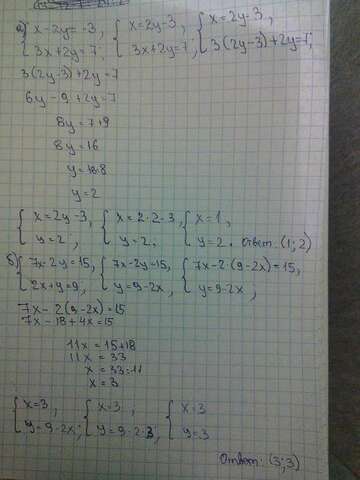 а) { x-2y=-3, { x=2y-3, { x=2y-3,
3x+2y=7; 3x+2y=7; 3(2y-3)+2y=7;
3(2y-3)+2y=7
6y-9+2y=7
8y=7+9
8y=16
y=16:8
y=2
{ x=2y-3, { x=2·2-3, { x=1,
y=2, y=2. y=2. Ответ: (1;2)
б) { 7x-2y=15, { 7x-2y=15, { 7x-2·(9-2x)=15,
2x+y=9; y=9-2x; y=9-2x;
7x-2(9-2x)=15
7x-18+4x=15
11x=15+18
11x=33
x=33:11
x=3
{ x=3, { x=3, { x=3
y=9-2x; y=9-2·3; y=3
Ответ: (3;3)